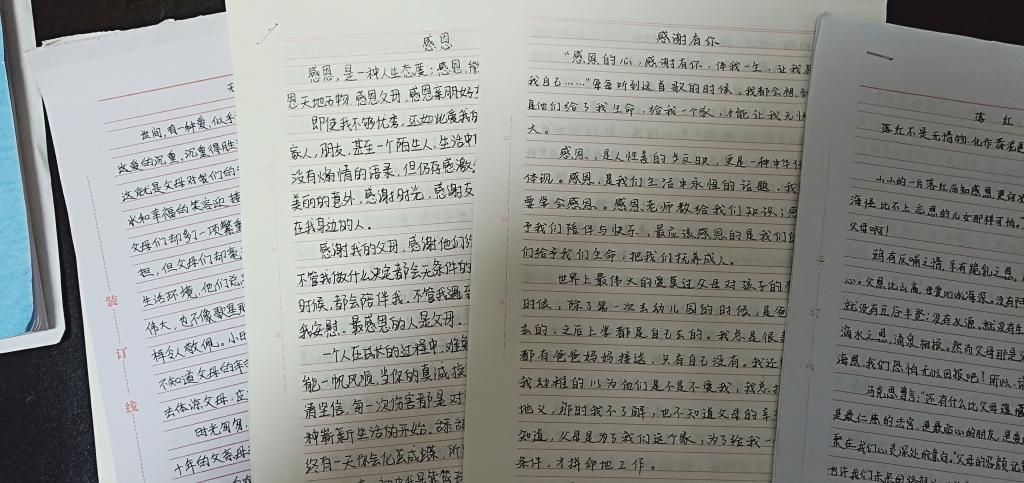 世间,有一种爱,似
这爱的沉重,沉重得
这就是父母对我们的
水和幸福的笑容还
父母们却多了一项繁重
担,但父母们却毫
生活环境,他们
伟大,也不像
样令人敬佩。小
不知道父母的辛
去体凉父母,应
时光匆匆,
十年的父
装
订
线
感恩
感恩,是一种人生态度;感恩,能
恩天地万物,感恩父母,感恩亲朋好友
即使我不够优秀,还如此爱我的
家人,朋友,甚至一个陌生人,生活中
没有煽情的语录,但仍存感激
美丽的意外,感谢时光,感谢友
在我身边的人。
感谢我的父母,感谢他们给
不管我做什么决定都会无条件的
时候,都会陪伴我,不管我遇到
我安慰。最感恩的人是父母。
一个人在成长的过程中,难免
能一帆风顺,当你的真诚
清坚信,每一次伤害都是对
种崭新生活的开始。
终有一天你会化茧成蝶,所
感谢有你
“感恩的心,感谢有你,伴我一生,让我有
我自己……”每每听到这首歌的时候,我都会想
是他们给了我生命,给我一个家,才能让我无忧
大。
感恩,是人性善的反映,更是一种
体现。感恩,是我们生活中永恒的话题,我
要学会感恩。感恩老师教给我们知识;感
予我们陪伴与快乐,最应该感恩的是我们的
们给予我们生命,把我们抚养成人。
世界上最伟大的莫过父母对孩子的
时候,除了第一次去幼儿园的时候,是爸
去的,之后上学都是自己去的。我总是很
都有爸爸妈妈接送,只有自己没有。我还
我幼稚的以为他们是不是不爱我,我总
地义,那时我不了解,也不知道父母的辛
知道,父母是为了我们这个家,为了给我一
条件,才拼命地工作。
落红
落红不是无情物,化作春泥更
小小的一片落红尚知感恩,更何
海怪比不上忘恩的儿女那样可怕。
父母啊!
鸦有反哺之情,羊有跪乳之恩,
心。父恩比山高,母爱比水海深。没有阳
就没有五谷丰登;没有水源,就没有生
滴水之恩,涌泉相报。然而父母那是
海恩,我们恐怕无以回报吧!所以,
马克思曾言:“还有什么比父母蕴藏
是最仁慈的法官,是最贴心的朋友,是
聚在我们心灵深处的
也许我们